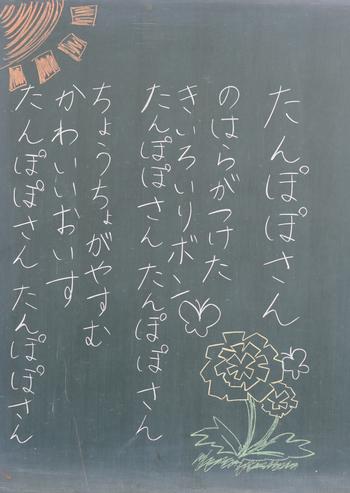 たんぽぽさん
のはらがつけた
きいろいリボン
たんぽぽさん たんぽぽさん
ちょうちょがやすむ
かわいいおいす
たんぽぽさん たんぽぽさん